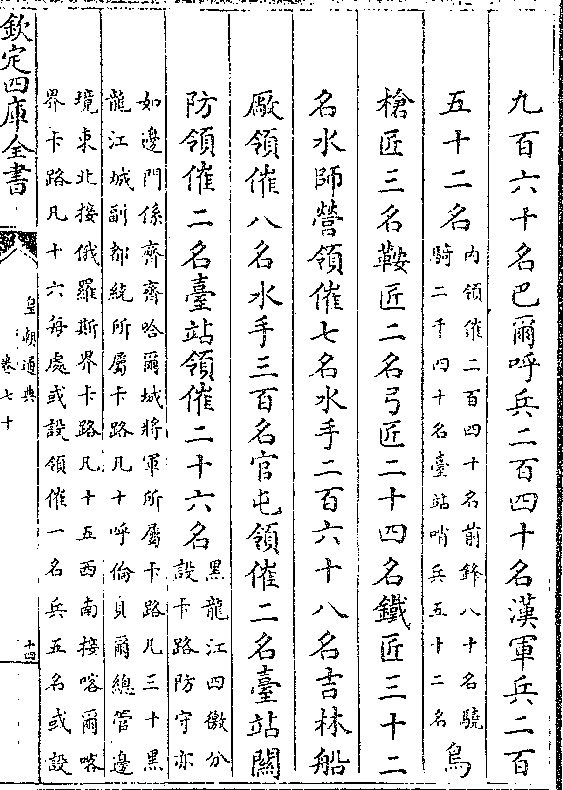 九百六十名巴爾呼兵二百四十名漢軍兵二百
五十二名
內領催二百四十名前鋒八十名驍
騎二千四十名臺站哨兵五十二名
鳥
槍匠三名鞍匠二名弓匠二十四名鐵匠三十二
名水師營領催七名水手二百六十八名吉林船
厰領催八名水手三百名官屯領催二名臺站關
防領催二名臺站領催二十六名
黑龍江四徼分
設卡路防守亦
如邊門係齊齊哈爾城將軍所屬卡路凡三十黑
龍江城副都統所屬卡路凡十呼倫貝爾總管邊
境東北接俄羅斯界卡路凡十五西南接喀爾喀
界卡路凡十六每處或設領催一名兵五名或設
欽定四庫全書
皇朝通典
卷七十
十四